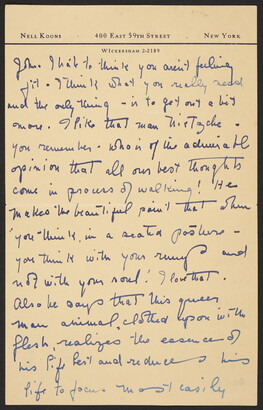 NELL KOONS 400 EAST 59TH STREET NEW YORK
WICKERSHAM 2-2189
John. I hate to think you aren't feeling
fit. I think what you really need
and the only thing - is to get out a bit
more. I like that man Nietzche -
you remember - who is of the admirable
opinion that all our best thoughts
come in process of walking! He
makes the beautiful point that when
'you think, in a seated posture -
you think with your rump and
not with your soul! I love that.
Also he says that this queer
man animal, clothed upon with
flesh, realizes the essence of
his life best and reduces his
life to focus most easily